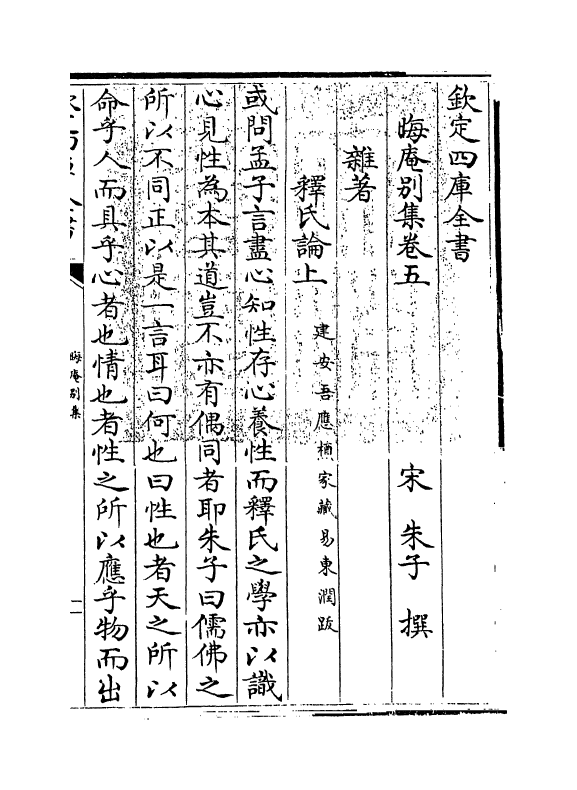 欽定四庫全書
晦庵別集卷五
宋　朱子　撰
雜著
釋氏論上
建安吾應楠家藏易東澗跋
或問孟子言盡心知性存心養性而釋氏之學亦以識
心見性為本其道豈不亦有偶同者耶朱子曰儒佛之
所以不同正以是一言耳曰何也曰性也者天之所以
命乎人而具乎心者也情也者性之所以應乎物而出
晦庵別集